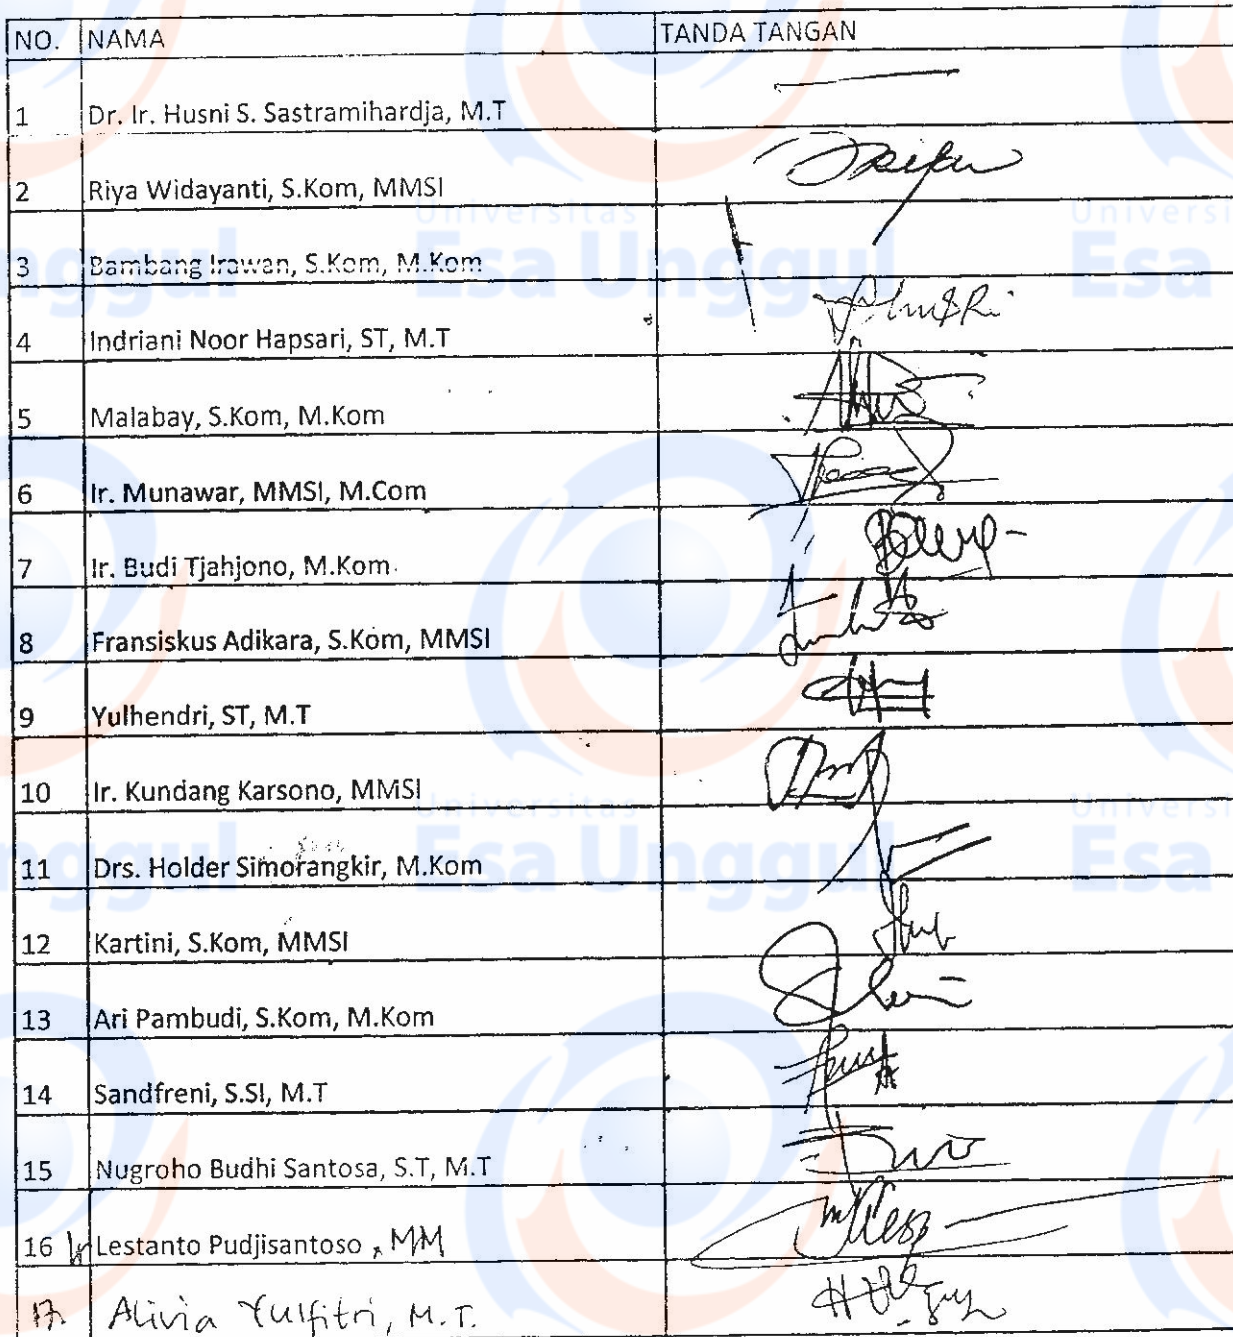 NO. NAMA TANDA TANGAN
1 Dr. Ir. Husni S. Sastramihardja, M.T
2 Riya Widayanti, S.Kom, MMSI
3 Bambang Irawan, S.Kom, M.Kom
4 Indriani Noor Hapsari, ST, M.T
5 Malabay, S.Kom, M.Kom
6 Ir. Munawar, MMSI, M.Com
7 Ir. Budi Tjahjono, M.Kom
8 Fransiskus Adikara, S.Kom, MMSI
9 Yulhendri, ST, M.T
10 Ir. Kundang Karsono, MMSI
11 Drs. Holder Simorangkir, M.Kom
12 Kartini, S.Kom, MMSI
13 Ari Pambudi, S.Kom, M.Kom
14 Sandfreni, S.SI, M.T
15 Nugroho Budhi Santosa, S.T, M.T
16 Ir Lestanto Pudjisantoso, MM
17. Alivia Yulfitri, M.T.
Universitas Universi
nggul Esa Unggul Esa
Universitas Universi
nggul Esa Unggul Esa